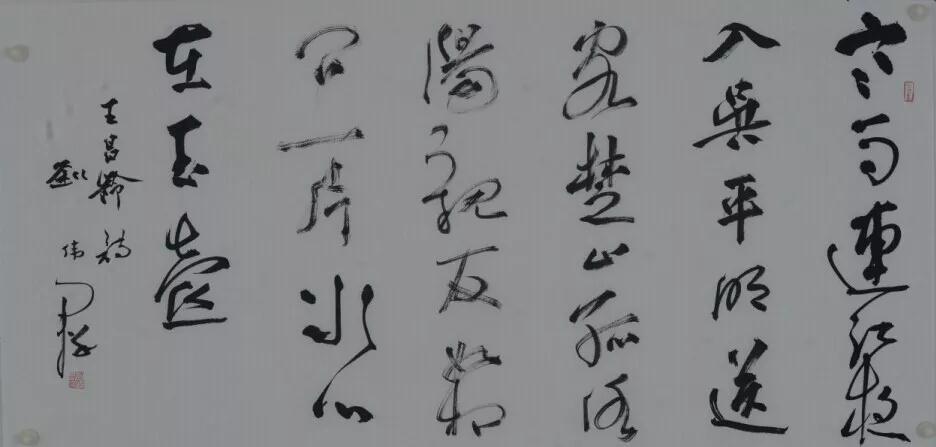 寒雨連江夜
入吳平明送
客楚山孤洛
陽親友如相
问一片冰心
在玉壺
王昌龄詩
伟